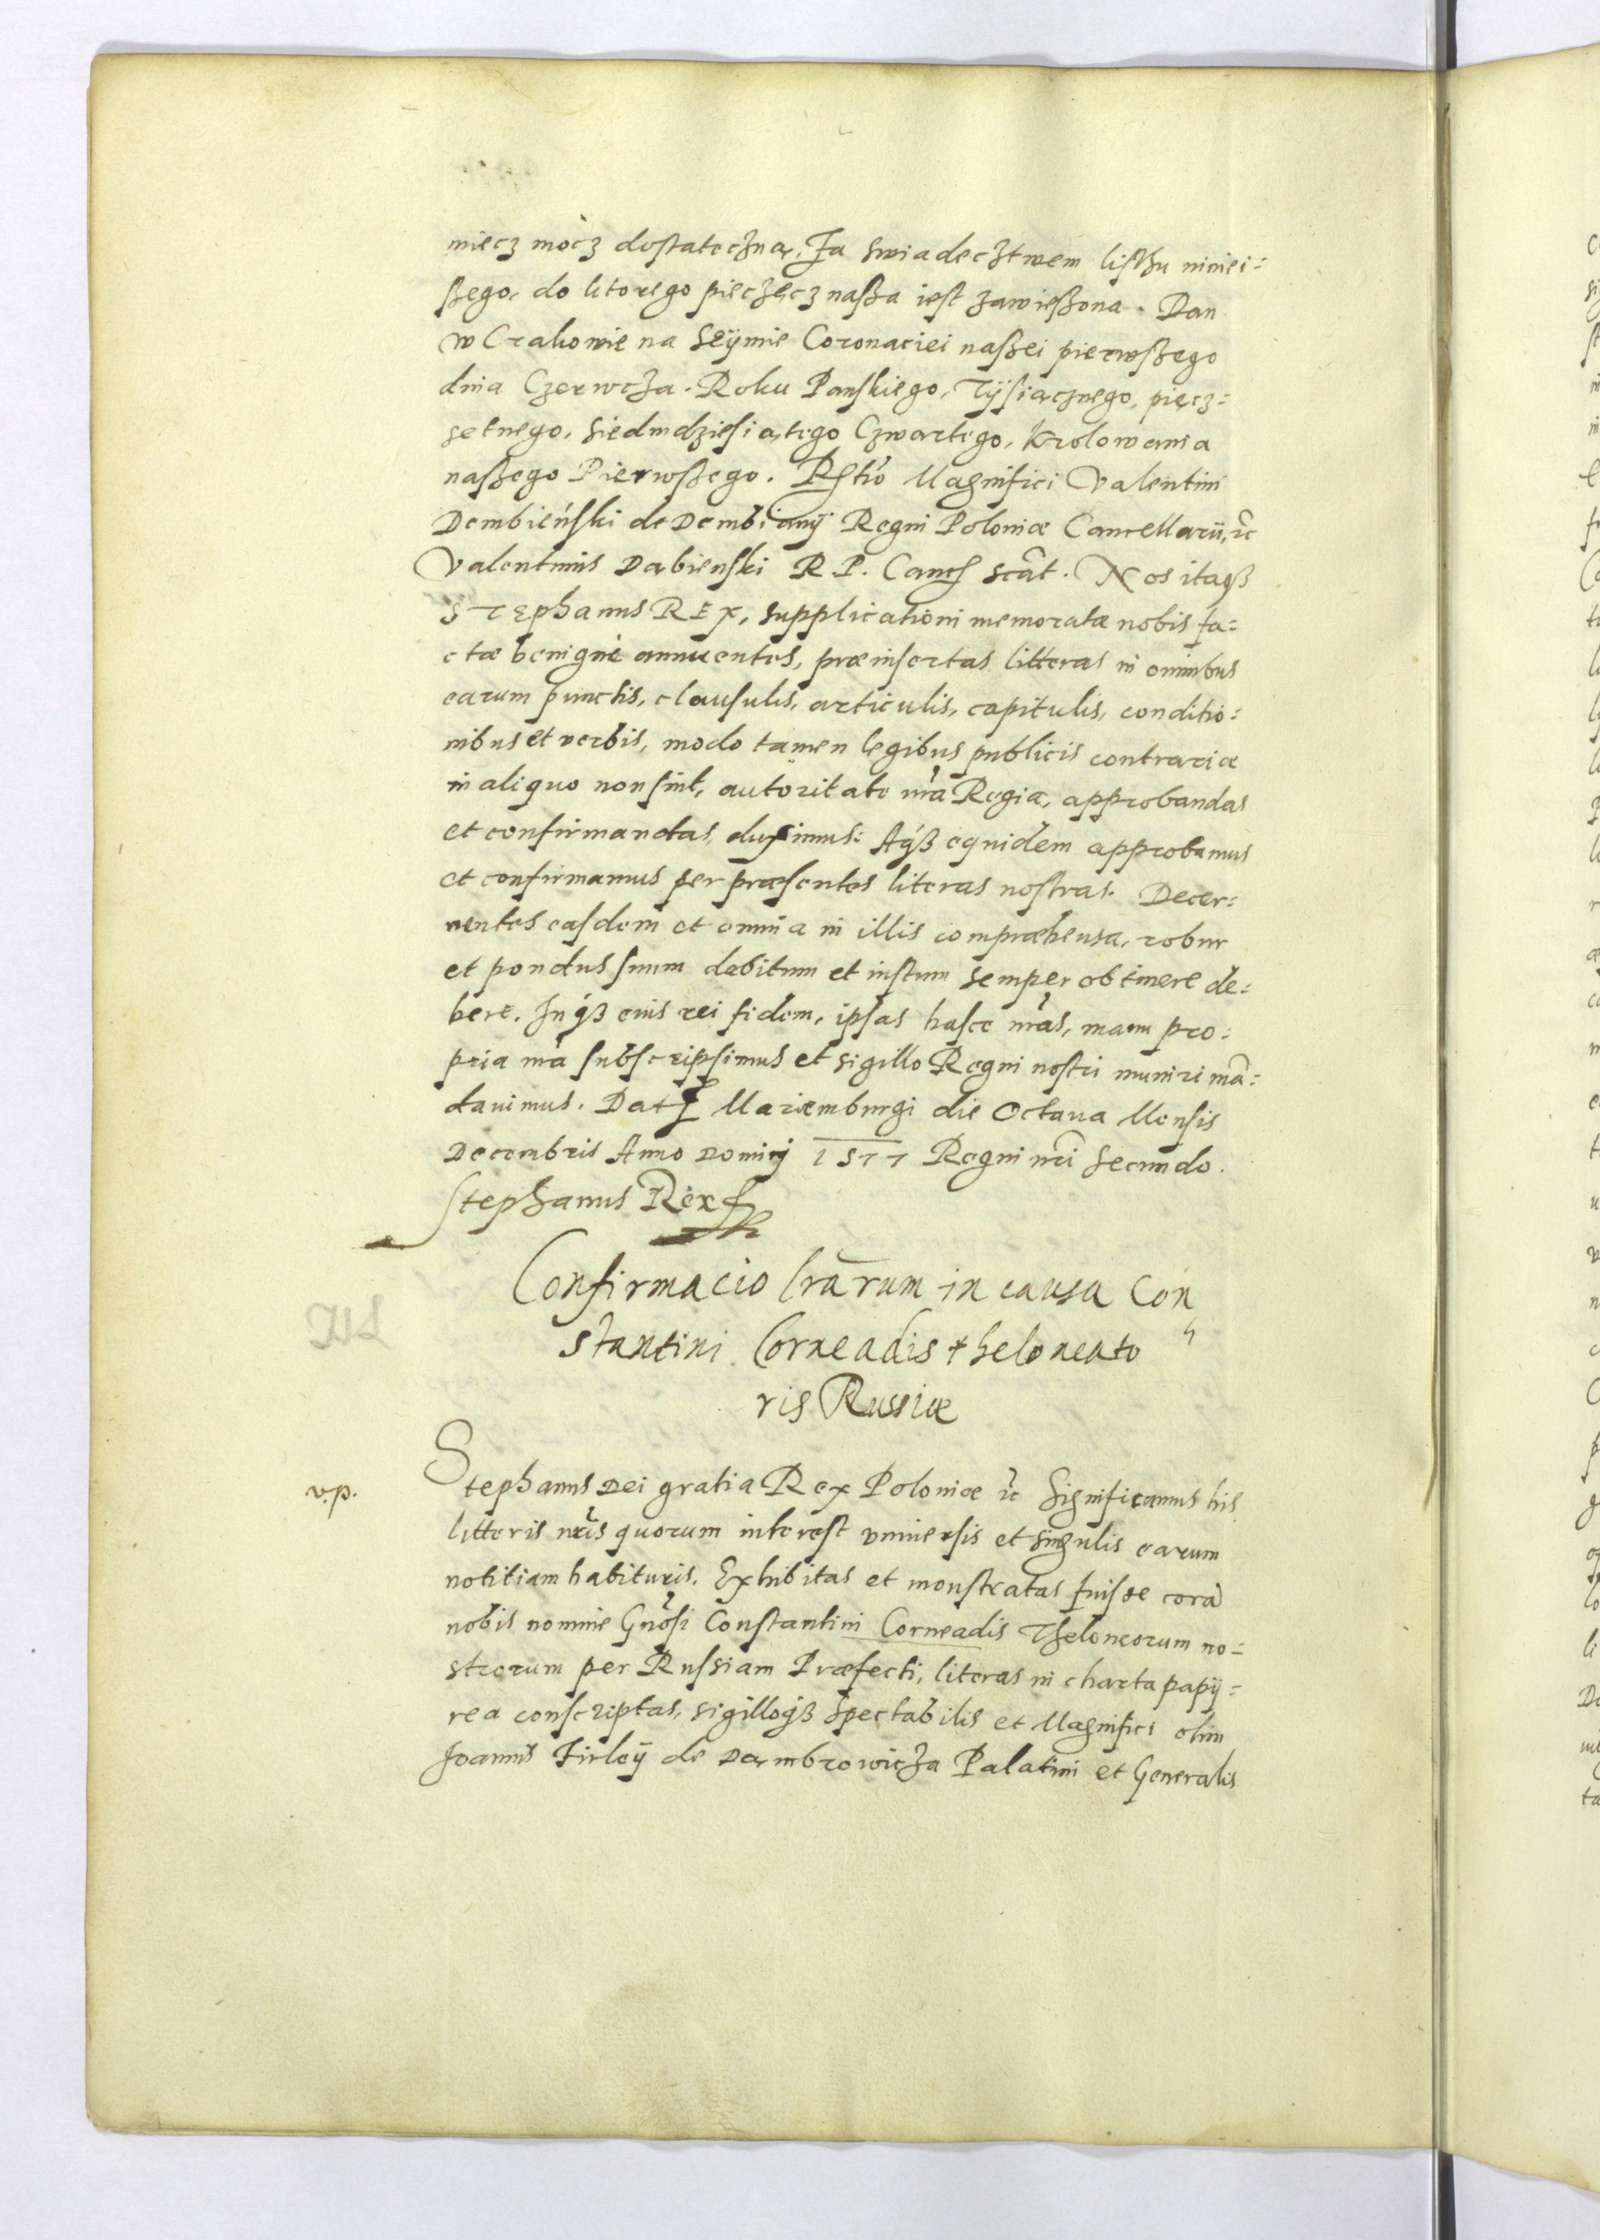 miecz mocz dostateczną. Za swiadecztwem listhu niniei:
szego, do ktorego pieczęcz nasza iest zawieszona. Dan
w Crakowie na Seÿmie Coronaciei naszei pierwszego
dnia Czerwcza. Roku Panskiego, Tÿsiącznego, pięcz:
setnego, siedmdziesiątego Czwartego, Krolowania
naszego Pierwszego. Rltio Magnifici Valentini
Dembieński de Dembianÿ Regni Poloniæ Cancellarii, etc
Valentinus Dabienski R. P. Canc. scat. Nos itaqȝ
Stephanus REX, supplicationi memoratæ nobis fa:
ctæ benignè annuentes, præinsertas litteras in omnibus
earum punctis, clausulis, articulis, capitulis, conditio:
nibus et verbis, modo tamen legibus publicis contrariæ
in aliquo non sint, autoritate nra Regia, approbandas
et confirmandas duximus: Aqȝ equidem approbamus
et confirmamus per præsentes literas nostras. Decer:
nentes easdem et omnia in illis compræhensa, robur
et pondus suum debitum et iustum semper obtinere de:
bere. In qȝ eius rei fidem, ipsas hasce nras, manu pro:
pria nra subscripsimus et sigillo Regni nostri muniri mã:
dauimus. Dat Mariæmburgi die Octaua Mensis
Decembris Anno Domini 1577 Regni nri Secundo.
Stephanus Rex
Confirmacio lrarum in causa Con
stantini Corneadis theloneato
ris Russiæ
v.p.
Stephanus Dei gratia Rex Poloniæ etc Significamus his
litteris nris quorum interest vniuersis et singulis earum
notitiam habituris. Exhibitas et monstratas fuisse corã
nobis nomine Gnosi Constantini Corneadis Theloneorum no:
strorum per Russiam Præfecti, literas in charta papÿ:
rea conscriptas, sigilloqȝ Spectabilis et Magnifici olim
Joannis Firleÿ de Dambrowicza Palatini et Generalis